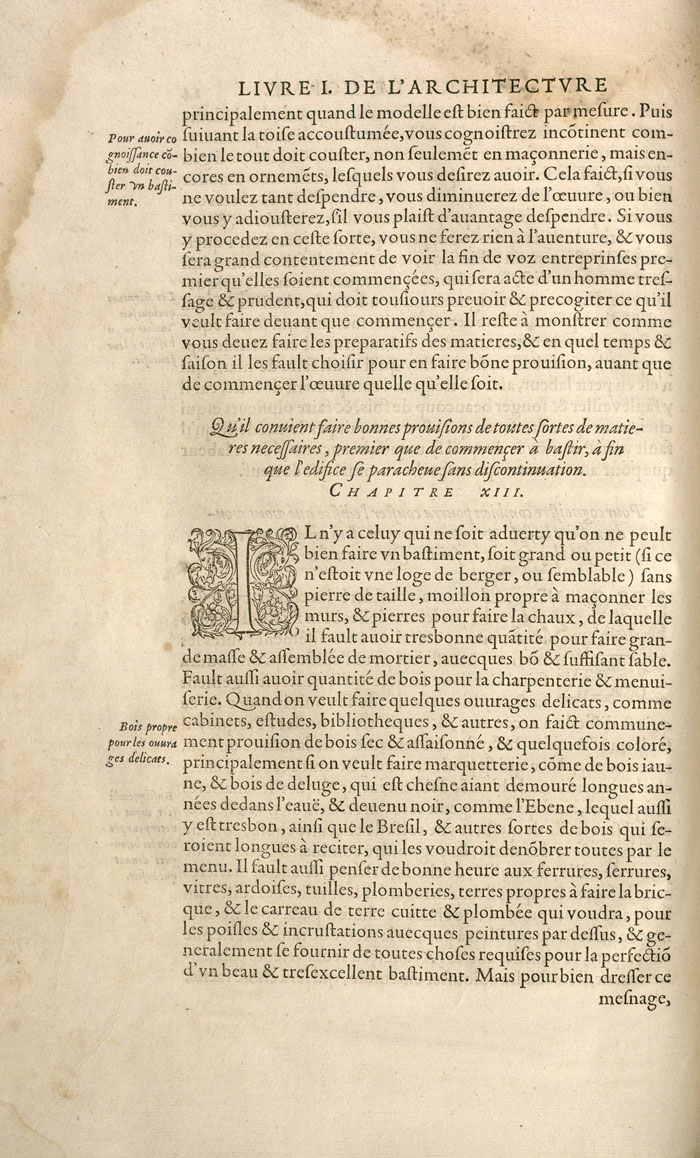 LIVRE I. DE L'ARCHITECTVRE
principalement quand le modelle est bien faict par mesure. Puis
Pour auoir co
gnoissance cō-
bien doit cou-
ster vn basti-
ment.
suiuant la toise accoustumée, vous cognoistrez incōtinent com-
bien le tout doit couster, non seulemēt en maçonnerie, mais en-
cores en ornemēts, lesquels vous desirez auoir. Cela faict, si vous
ne voulez tant despendre, vous diminuerez de l'œuure, ou bien
vous y adiousterez, s'il vous plaist d'auantage despendre. Si vous
y procedez en ceste sorte, vous ne ferez rien à l'auenture, & vous
sera grand contentement de voir la fin de voz entreprinses pre-
mier qu'elles soient commençées, qui sera acte d'un homme tres-
sage & prudent, qui doit tousiours preuoir & precogiter ce qu'il
veult faire deuant que commençer. Il reste à monstrer comme
vous deuez faire les preparatifs des matieres, & en quel temps &
saison il les fault choisir pour en faire bōne prouision, auant que
de commençer l'œuure quelle qu'elle soit.
Qu'il conuient faire bonnes prouisions de toutes sortes de matie-
res necessaires, premier que de commençer à bastir, à fin
que l'edifice se paracheue sans discontinuation.
CHAPITRE XIII.
IL n'y a celuy qui ne soit aduerty qu'on ne peult
bien faire vn bastiment, soit grand ou petit (si ce
n'estoit vne loge de berger, ou semblable) sans
pierre de taille, moillon propre à maçonner les
murs, & pierres pour faire la chaux, de laquelle
il fault auoir tresbonne quātité pour faire gran-
de masse & assemblée de mortier, auecques bō & suffisant sable.
Fault aussi auoir quantité de bois pour la charpenterie & menui-
serie. Quand on veult faire quelques ouurages delicats, comme
Bois propre
pour les ouura
ges delicats.
cabinets, estudes, bibliotheques, & autres, on faict commune-
ment prouision de bois sec & assaisonné, & quelquefois coloré,
principalement si on veult faire marquetterie, cōme de bois iau-
ne, & bois de deluge, qui est chesne aiant demouré longues an-
nées dedans l'eauë, & deuenu noir, comme l'Ebene, lequel aussi
y est tresbon, ainsi que le Bresil, & autres sortes de bois qui se-
roient longues à reciter, qui les voudroit denōbrer toutes par le
menu. Il fault aussi penser de bonne heure aux ferrures, serrures,
vitres, ardoises, tuilles, plomberies, terres propres à faire la bric-
que, & le carreau de terre cuitte & plombée qui voudra, pour
les poisles & incrustations auecques peintures par dessus, & ge-
neralement se fournir de toutes choses requises pour la perfectiō
d'vn beau & tresexcellent bastiment. Mais pour bien dresser ce
mesnage,